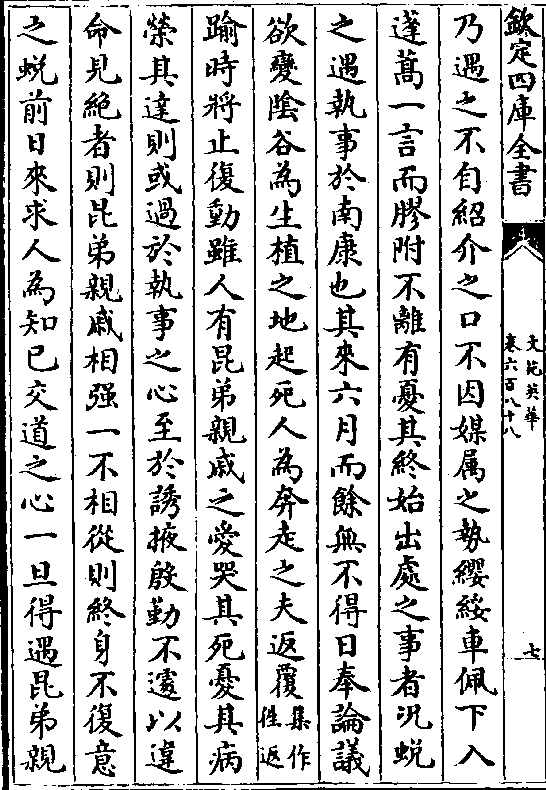 欽定四庫全書
文苑英華
卷六百八十八
七
乃遇之不自紹介之口不因媒属之勢纓綏車佩下入
蓬蒿一言而膠附不離有憂其終始出處之事者況蜕
之遇執事於南康也其來六月而餘無不得日奉論議
欲變陰谷為生植之地起死人為奔走之夫返覆集作徃返
踰時將止復動雖人有昆弟親戚之愛哭其死憂其病
榮其達則或過於執事之心至於誘掖殷勤不遽以違
命見絶者則昆弟親戚相强一不相從則終身不復意
之蜕前日來求人為知已交道之心一旦得遇昆弟親